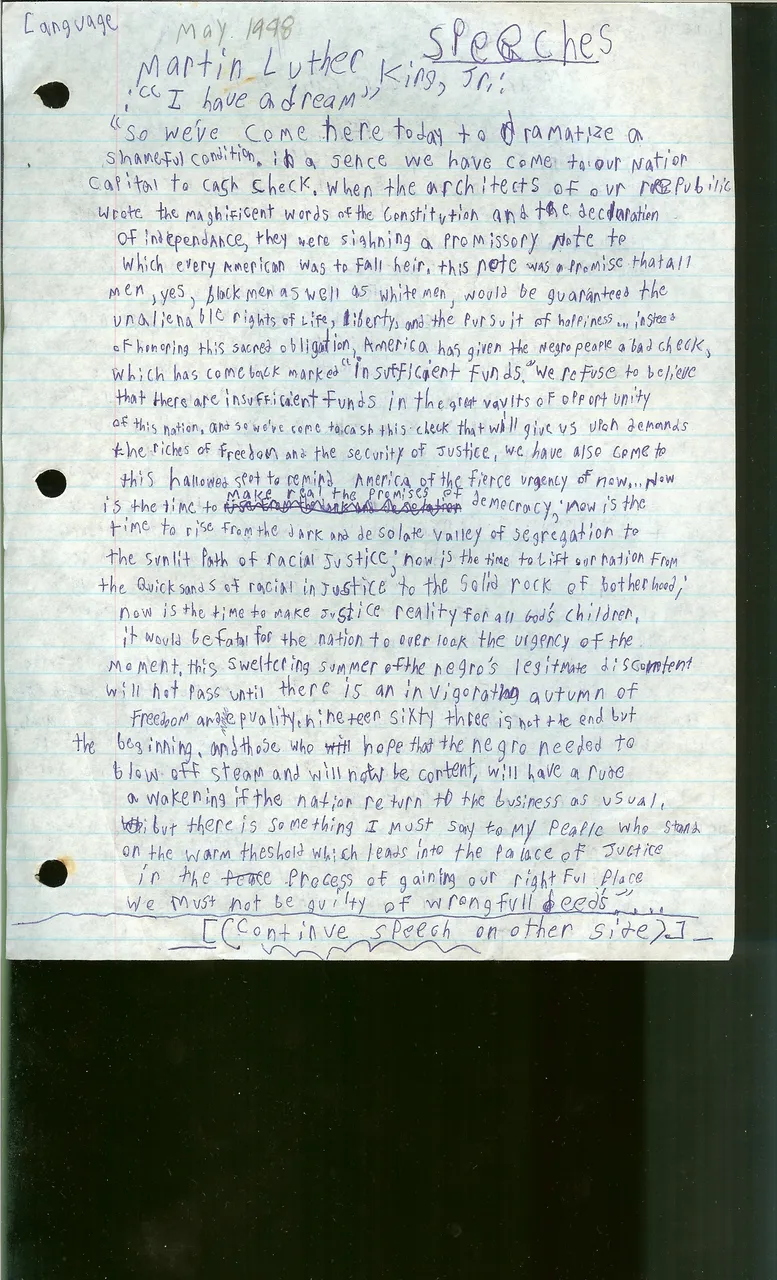 Language
May. 1998
SPEECHES
Martin Luther King, Jr.:
"I have a dream"
"So we've come here today to dramatize a
shameful condition. in a sence we have come to our Nation
Capital to cash check. when the architects of our REPublic
wrote the magnificent words of the Constitution and the declaration
of independance, they were sighning a promissory Note to
which every American was to fall heir. this note was a promise that all
men, yes, black men as well as white men, would be guaranteed the
unalienable rights of Life, liberty, and the pursuit of happiness... instead
of honoring this sacred obligation, America has given the Negro people a bad check,
which has come back marked "insufficient funds." We refuse to believe
that there are insufficient funds in the great vaults of opportunity
of this nation. and so we've come to cash this check that will give us upon demands
the riches of freedom and the security of Justice, we have also come to
this hallowed spot to remind America of the fierce urgency of now... Now
is the time to make real the promises of democracy; now is the
time to rise from the dark and desolate valley of segregation to
the sunlit path of racial Justice; now is the time to lift our nation from
the quicksands of racial inJustice to the solid rock of botherhood;
now is the time to make Justice reality for all God's children.
it would be fatal for the nation to over look the urgency of the
moment. this sweltering summer of the negro's legitmate discontent
will not pass until there is an invigorating autumn of
Freedom and equality. nineteen sixty three is not the end but
the beginning. and those who will hope that the negro needed to
blow off steam and will now be content, will have a rude
a wakening if the nation return to the business as usual.
but there is something I must say to my people who stand
on the warm theshold which leads into the palace of Justice
in the process of gaining our right ful place
we must not be guilty of wrongfull deeds"....
[(Continue speech on other side)]